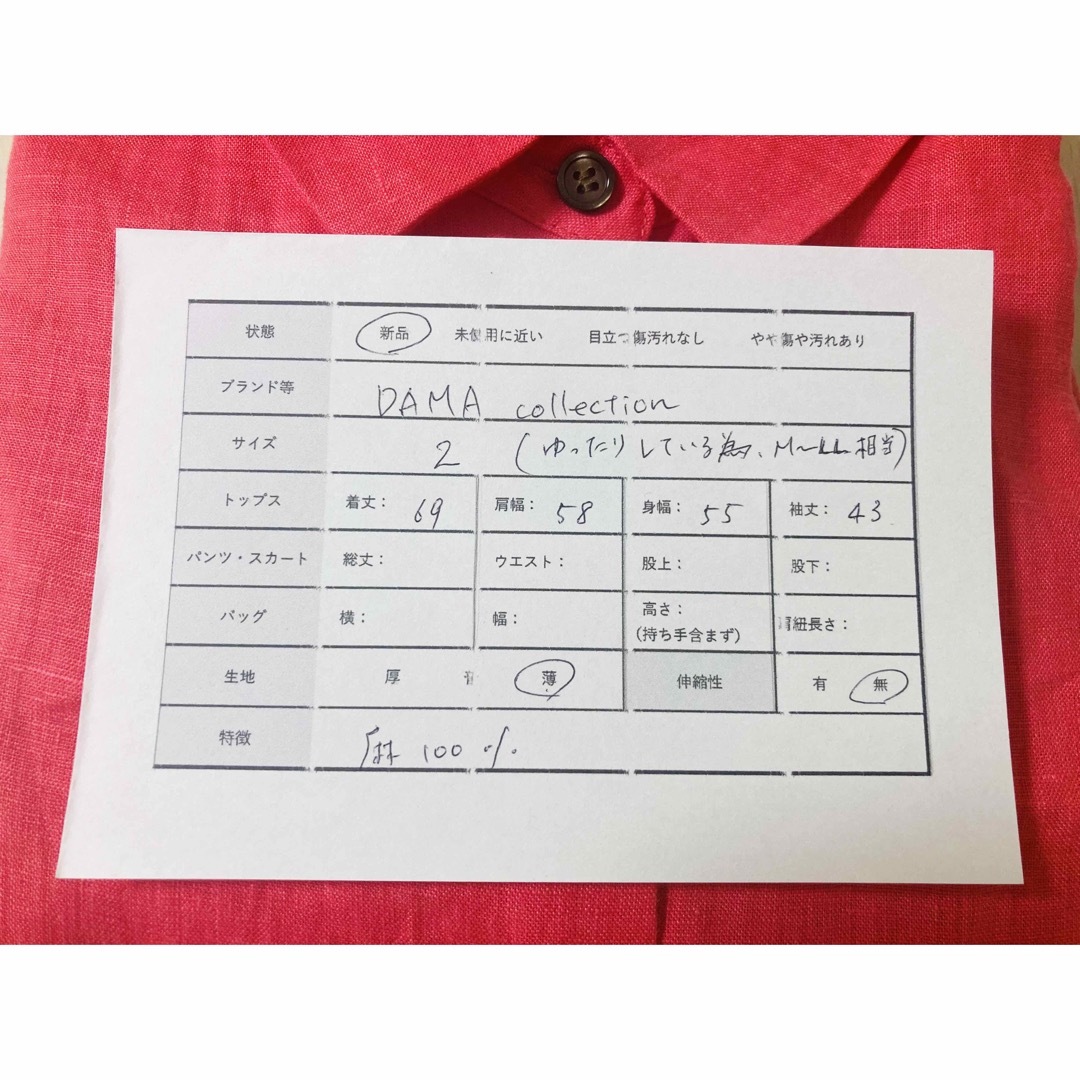 状態 新品 未使用に近い 目立つ傷汚れなし やや傷や汚れあり
ブランド等 DAMA collection
サイズ 2 (ゆったりしている為、M〜LL相当)
トップス 着丈: 69 肩幅: 58 身幅: 55 袖丈: 43
パンツ・スカート 総丈: ウエスト: 股上: 股下:
バッグ 横: 幅: 高さ: 肩紐長さ:
(持ち手含まず)
生地 厚 薄 伸縮性 有 無
特徴 麻 100%